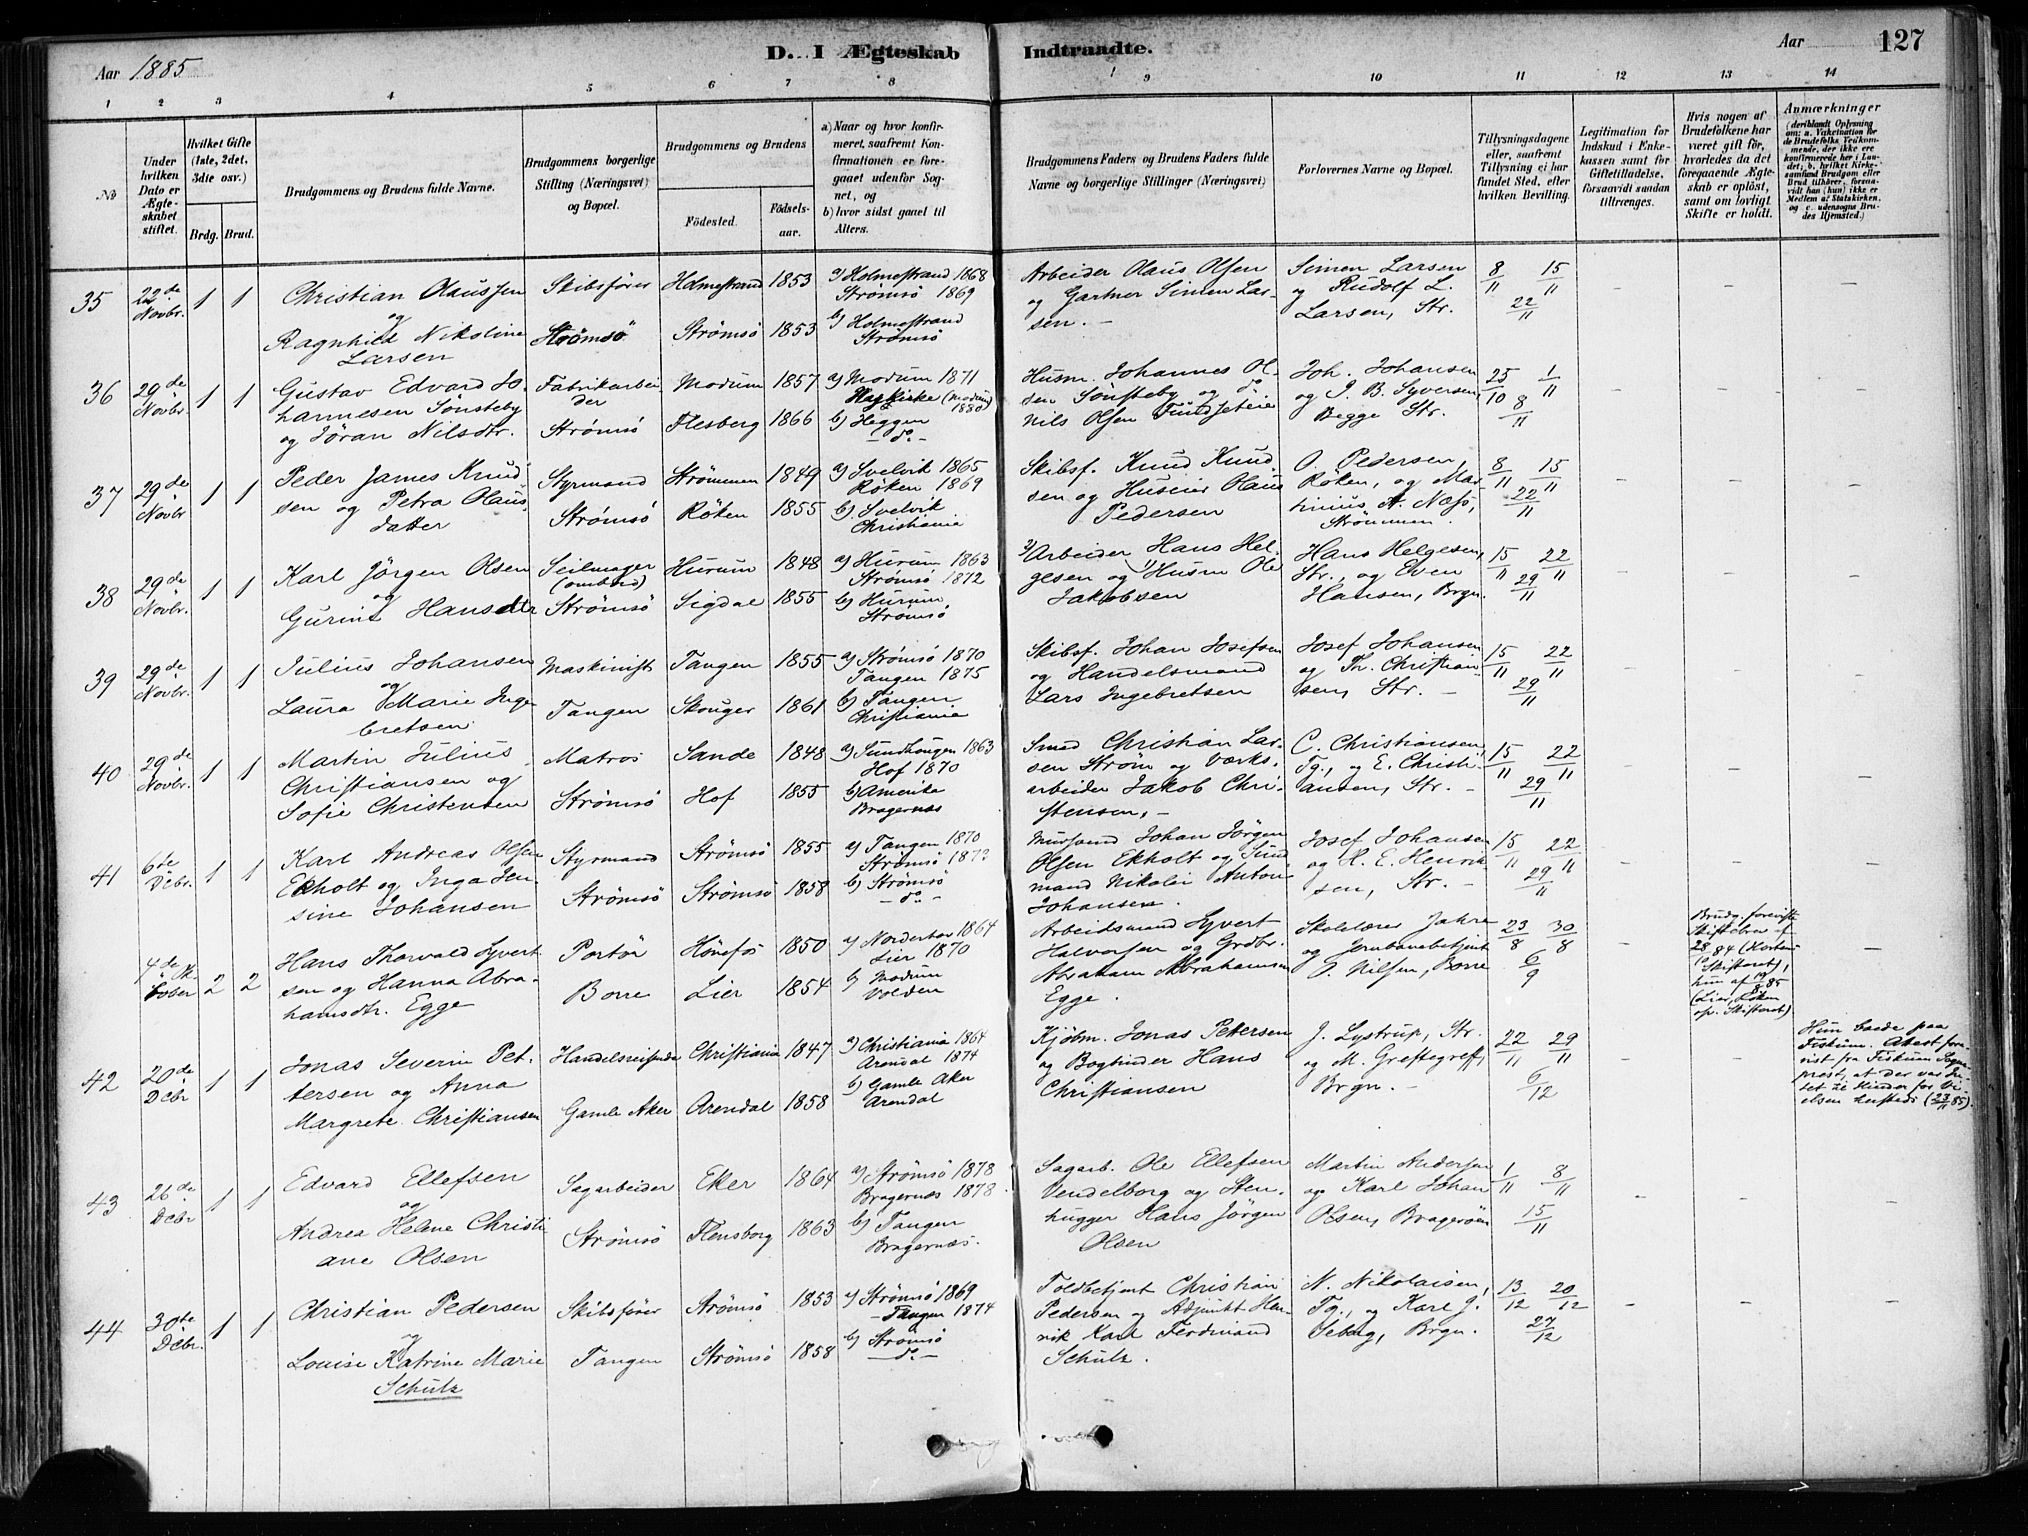 Aar 1885
D. I Ægteskab Indtraadte.
Aar 127
1 2 3 4 5 6 7 8 9 10 11 12 13 14
No
Under hvilken Dato er Ægteskabet stiftet.
Hvilket Gifte (1ste, 2det, 3die osv.)
Brdg. Brud.
Brudgommens og Brudens fulde Navne.
Brudgommens borgerlige Stilling (Næringsvei) og Bopæl.
Brudgommens og Brudens
Fødested.
Fødselsaar.
a) Naar og hvor konfirmeret, saafremt Konfirmationen er foregaaet udenfor Sognet, og
b) hvor sidst gaaet til Alters.
Brudgommens Faders og Brudens Faders fulde Navne og borgerlige Stillinger (Næringsvei)
Forlovernes Navne og Bopæl.
Tillysningsdagene eller, saafremt Tillysning ei har fundet Sted, efter hvilken Bevilling.
Legitimation for Indskud i Enkekassen samt for Giftetilladelse, forsaavidt saadan tiltrænges.
Hvis nogen af Brudefolkene har været gift før, hvorledes da det foregaaende Ægteskab er opløst, samt om lovligt Skifte er holdt.
Anmærkninger (deriblandt Oplysning om: a. Vakcination for de Brudefolks Vedkommende, der ikke ere konfirmerede her i Landet; b. hvilket Kirkesamfund Brudgom eller Brud tilhører, forsaavidt han (hun) ikke er Medlem af Statskirken, og c. udensogns Brudes Hjemsted.)
35 22de Novbr. 1 1
Christian Olaussen
og
Ragnhild Nikoline
Larsen
Skibsfører
Strömsö
Holmestrand 1853
Strömsö 1853
a) Holmestrand 1868
Strömsö 1869
b) Holmestrand
Strömsö
Arbeider Olaus Olsen
og Gartner Simen Lar-
sen. -
Simen Larsen
og Rudolf L.
Larsen, Str.
8/11 15/11
22/11
36 29de Novbr. 1 1
Gustav Edvard Jo-
hannesen Sönsteby
og Jöran Nilsdtr.
Fabrikarbei-
der
Strömsö
Modum 1857
Flesberg 1866
a) Modum 1871
Kirke (Modum) 1880
b) Heggen
- do -
Husm. Johannes Ol-
sen Sönsteby og do
Nils Olsen
Joh. Johansen
og J. B. Syversen
Begge Str.
25/10 1/11
8/11
37 29de Novbr 1 1
Peder James Knud-
sen og Petra Olaus-
datter
Styrmand
Strömsö
Strömmen 1849
Röken 1855
a) Svelvik 1865
Röken 1869
b) Svelvik
Christiania
Skibsf. Knud Knud-
sen og Huseier Olaus
Pedersen
O. Pedersen,
Röken, og Mar-
tinius A. Næss,
Strömmen.
8/11 15/11
22/11
38 29de Novbr. 1 1
Karl Jörgen Olsen
og
Gurine Hansdtr
Seilmager
(ombord)
Strömsö
Hurum 1848
Sigdal 1855
a) Hurum 1863
Strömsö 1872
b) Hurum
Strömsö
2) Arbeider Hans Hel-
gesen og 1) Husm Ole
Jakobsen
Hans Helgesen,
Str., og Even
Hansen, Brgn.
15/11 22/11
29/11
39 29de Novbr. 1 1
Julius Johansen
og
Laura Marie Inge-
bretsen
Maskinist
Tangen
Tangen 1855
Skouger 1861
a) Strömsö 1870
Tangen 1875
b) Tangen
Christiania
Skibsf. Johan Josefsen
og Handelsmand
Lars Ingebretsen
Josef Johansen
og Th. Christian-
sen, Str. -
15/11 22/11
29/11
40 29de Novbr. 1 1
Martin Julius
Christiansen og
Sofie Christensen
Matros
Strömsö
Sande 1848
Hof 1855
a) Sundhougen 1863
Hof 1870
b) Amerika
Bragernæs
Smed Christian Lar-
sen Ström og Værks-
arbeider Jakob Chri-
stensen, -
C. Christiansen,
Tg., og E. Christi-
ansen, Str. -
15/11 22/11
29/11
41 6de Dcbr. 1 1
Karl Andreas Olsen
Ekholt og Inga Jen-
sine Johansen
Styrmand
Strömsö
Strömsö 1855
Strömsö 1858
a) Tangen 1870
Strömsö 1873
b) Strömsö
- do -
Mursvend Johan Jörgen
Olsen Ekholt og Sund-
mand Nikolai Anton
Johansen.
Josef Johansen
og H. E. Henrik-
sen, Str. -
15/11 22/11
29/11
4de Oktober 2 2
Hans Thorvald Syvert-
sen og Hanna Abra-
hamsdtr. Egge
Portör
Borre
Hönefos 1850
Lier 1854
a) Norderhov 1864
Lier 1870
b) Modum
Volden
Arbeidsmand Syvert
Halvorsen og Grdbr.
Abraham Abrahamsen
Egge.
Skolelærer Jahre
og Jernbanebetjent
O. Nilsen, Borre
23/8 30/8
6/9
Brudg. foreviste
Skiftebrev af
28/10 84 (Horten
Skifteret),
hun af 19/8 85
(Lier, Röken
sp. Skifteret)
42 20de Dcbr 1 1
Jonas Severin Pet-
tersen og Anna
Margrete Christiansen
Handelsreisende
Gamle Aker
Christiania 1847
Arendal 1858
a) Christiania 1864
Arendal 1874
b) Gamle Aker
Arendal
Kjöbm. Jonas Pettersen
og Bogbinder Hans
Christiansen
J. Lystrup, Str.
og M. Greftegreff,
Brgn. -
22/11 29/11
6/12
Hun boede paa
Fiskum. Attest fore-
vist fra Fiskum Sogne-
prest, at der var In-
tet til Hinder for Vi-
elsen hersteds (23/11 85).
43 26de Dcbr 1 1
Edvard Ellefsen
og
Andrea Helene Christi-
ane Olsen
Sagarbeider
Strömsö
Eker 1864
Flensborg 1863
a) Strömsö 1878
Bragernæs 1878
b) Tangen
Bragernæs.
Sagarb. Ole Ellefsen
Vendelborg og Sten-
hugger Hans Jörgen
Olsen
Martin Andersen
og Karl Johan
Olsen, Bragerøen
1/11 8/11
15/11
44 30te Dcbr. 1 1
Christian Pedersen
og
Louise Katrine Marie
Schulz
Skibsfører
Tangen
Strömsö 1853
Strömsö 1858
a) Strömsö 1869
- Tangen 1874
b) Strömsö
- do -
Toldbetjent Christian
Pedersen og Adjunkt Hen-
rik Karl Ferdinand
Schulz.
N. Nikolaisen,
Tg., og Karl J.
Seberg, Brgn.
13/12 20/12
27/12